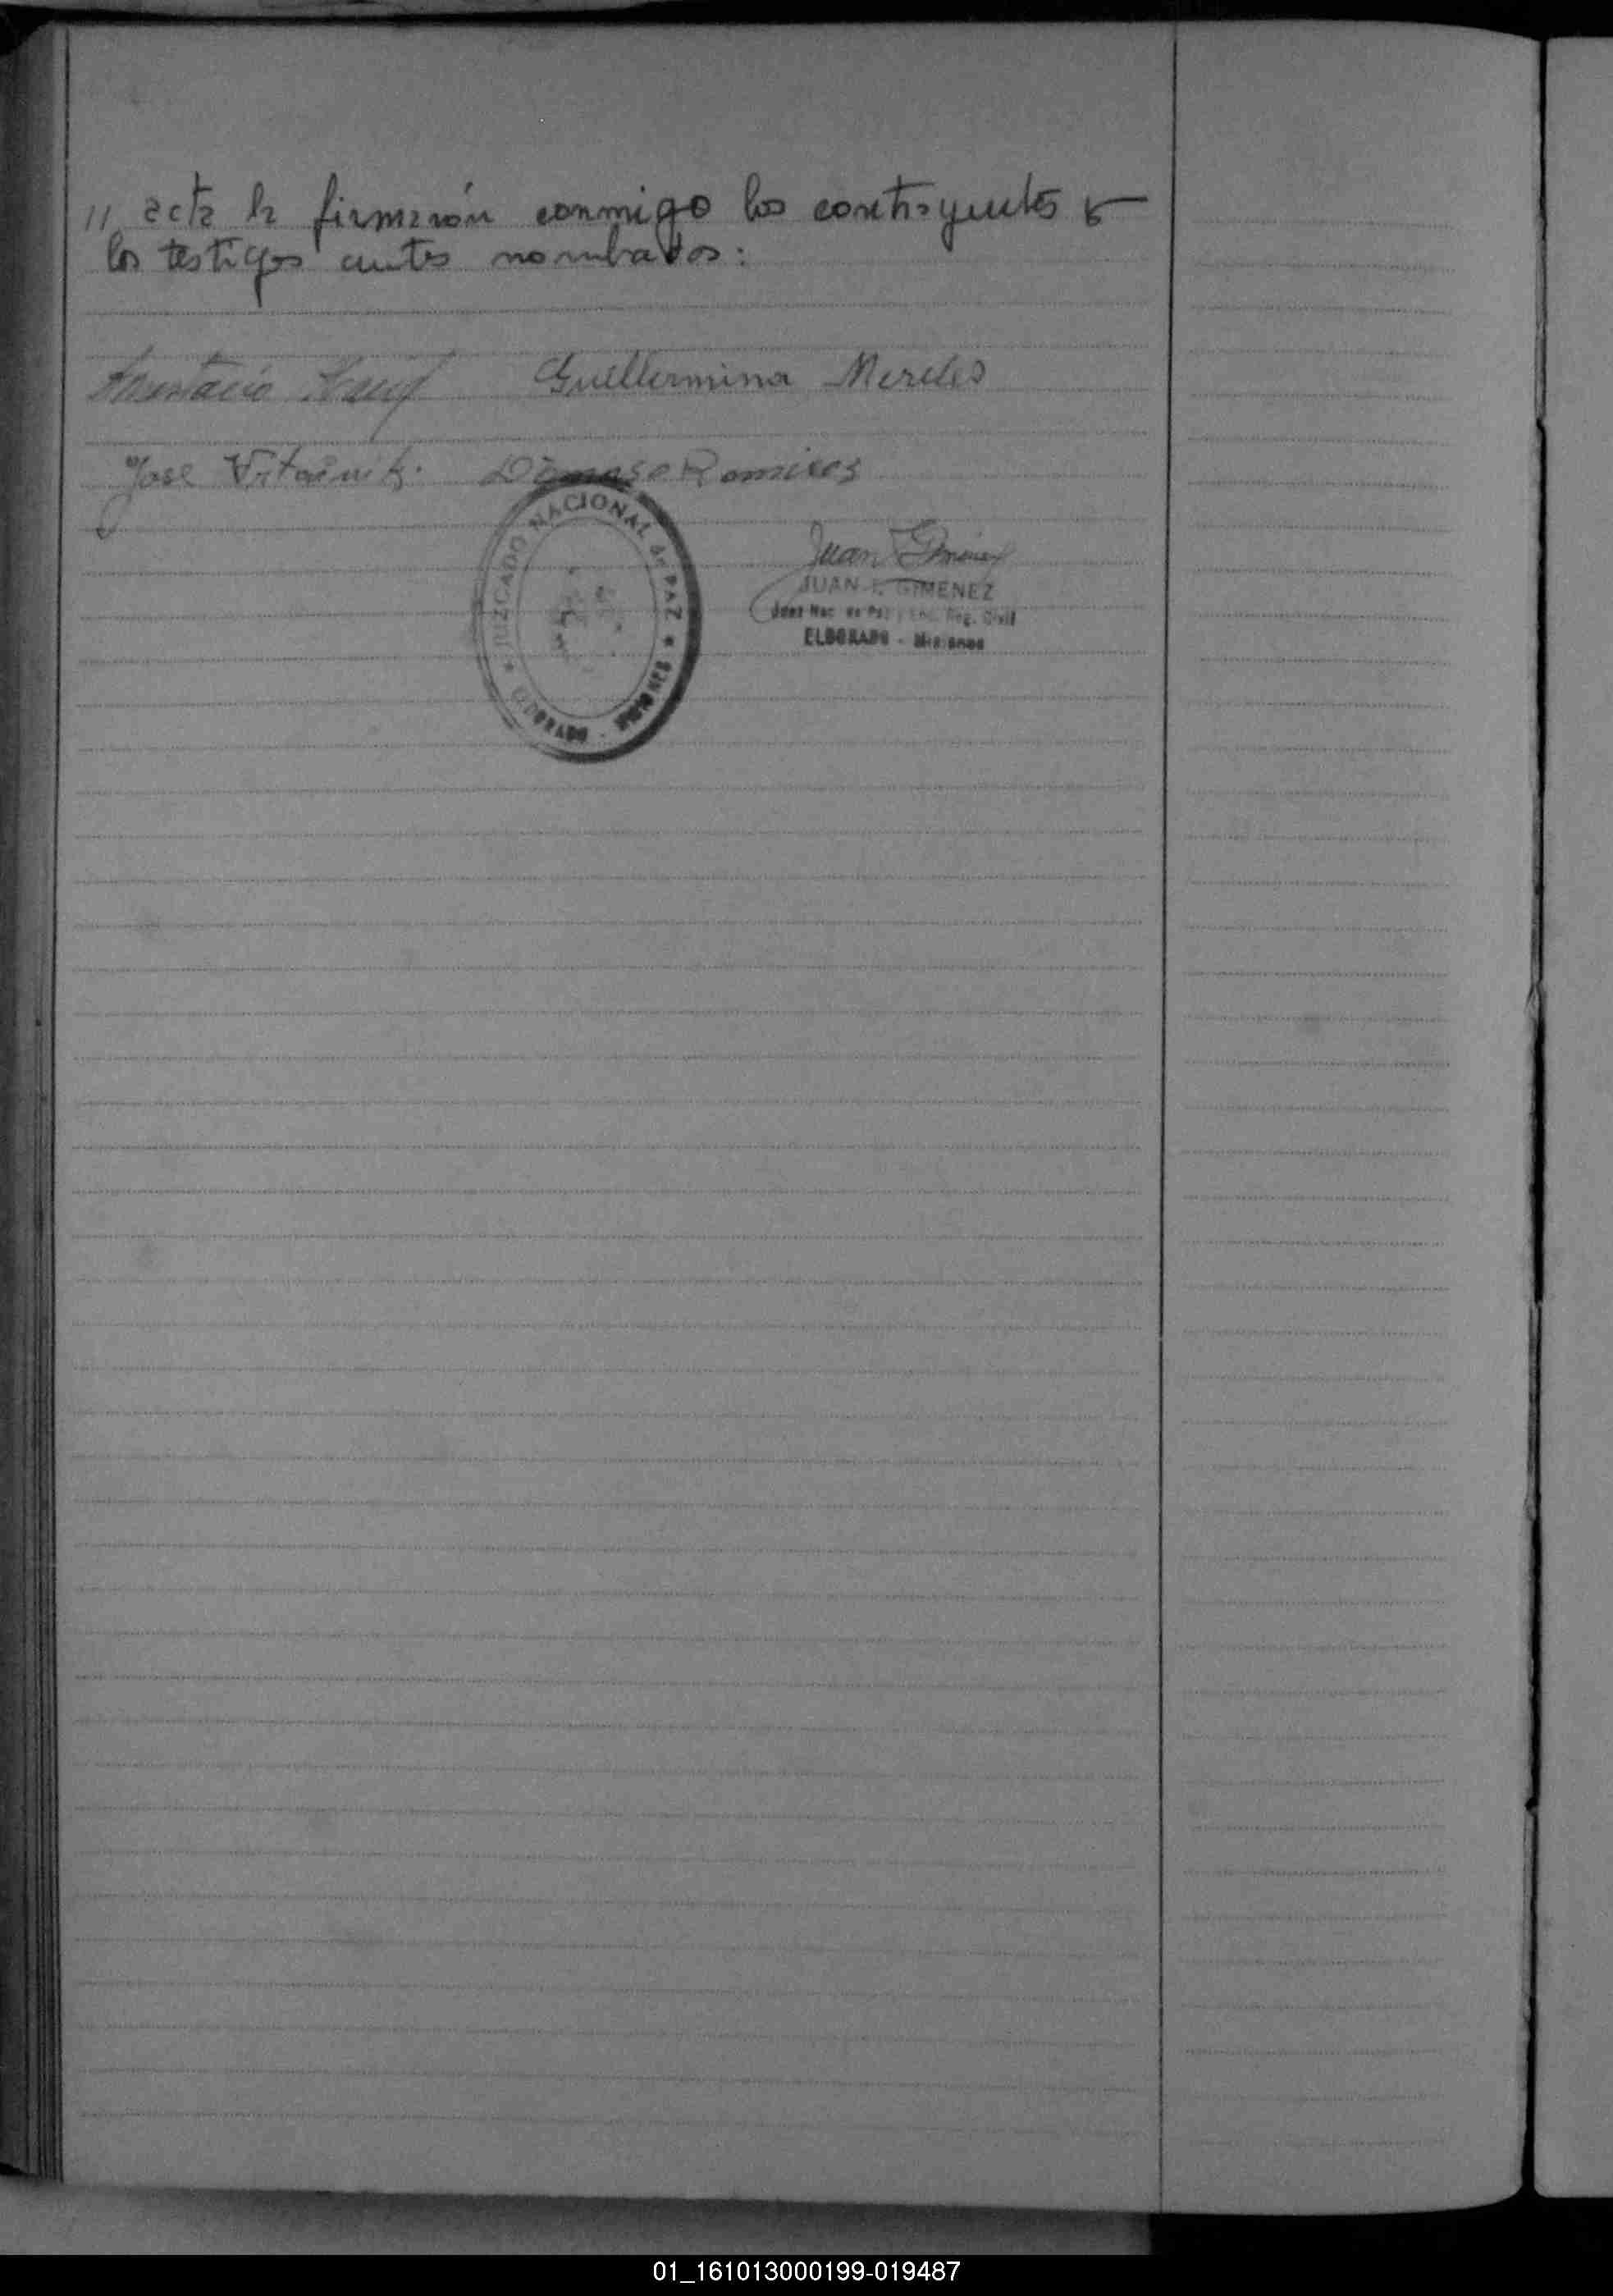 // acta la firmarón conmigo los contrayentes y
los testigos antes nombrados:
Anastacio
Guillermina Mereles
Jose
Damaso Ramires
JUZGADO NACIONAL de PAZ ★ ELDORADO - MISIONES ★
Juan Gimenez
JUAN E. GIMENEZ
Juez Nac. de Paz y Enc. Reg. Civil
ELDORADO - Misiones
01_161013000199-019487